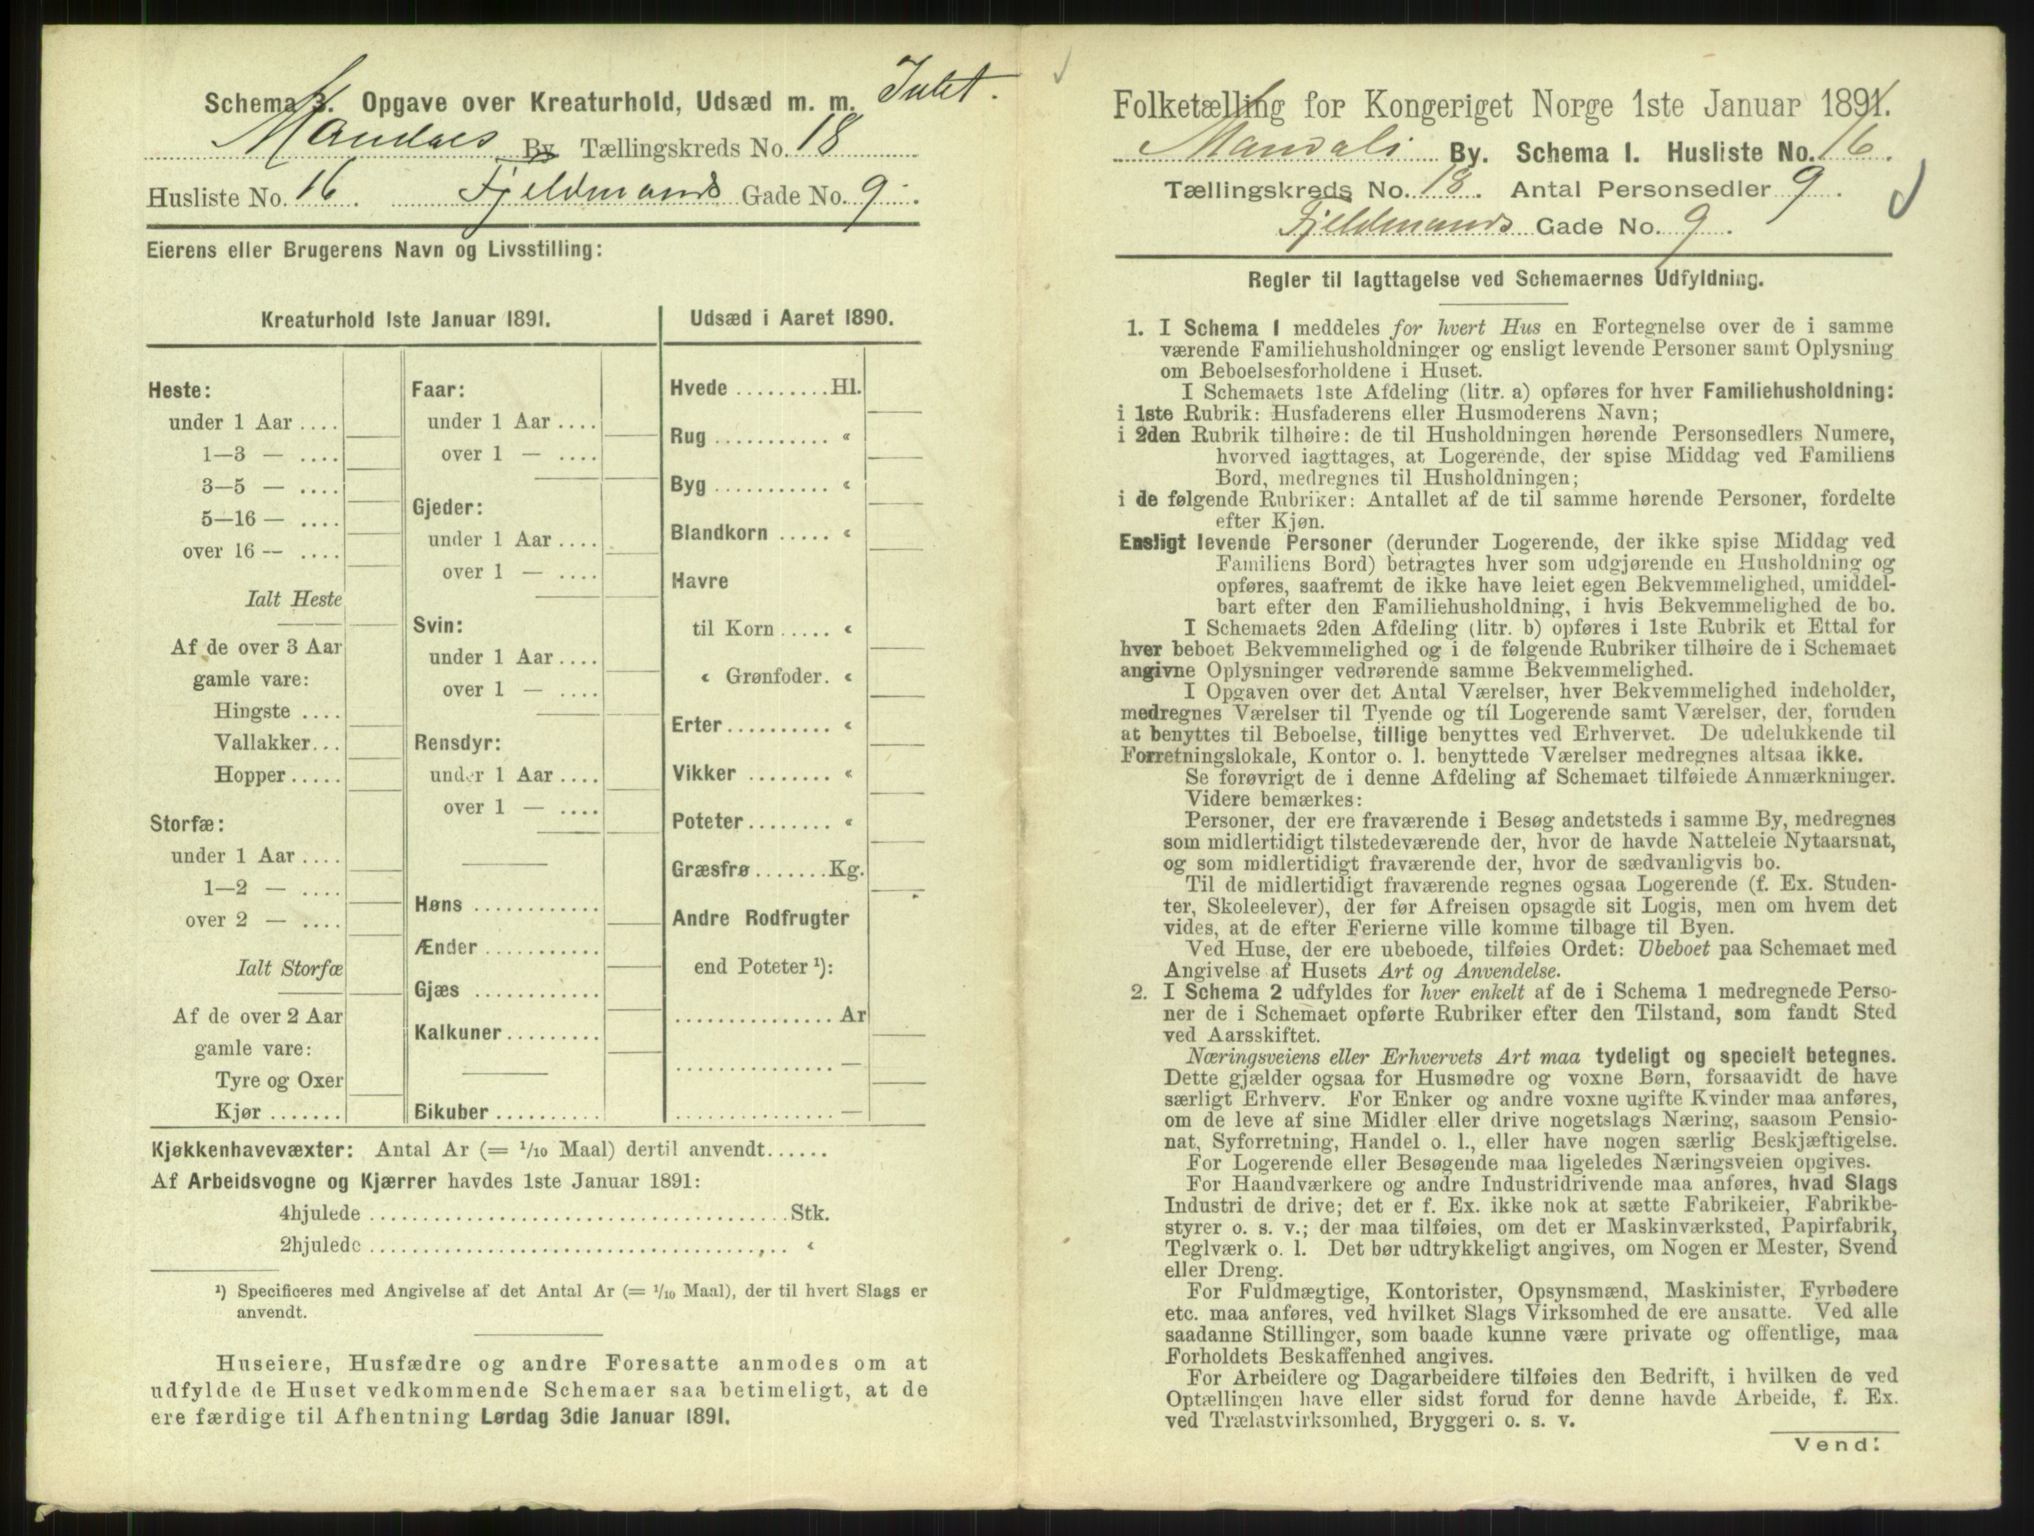 Schema 3. Opgave over Kreaturhold, Udsæd m. m. Intet.
Mandals By Tællingskreds No. 18
Husliste No. 16. Fjeldmands Gade No. 9.
Eierens eller Brugerens Navn og Livsstilling:
Kreaturhold 1ste Januar 1891.
Heste:
under 1 Aar ....
1—3 — ....
3—5 — ....
5—16 — ....
over 16 — ....
Ialt Heste
Af de over 3 Aar
gamle vare:
Hingste ....
Vallakker...
Hopper .....
Storfæ:
under 1 Aar ....
1—2 — ....
over 2 — ....
Ialt Storfæ
Af de over 2 Aar
gamle vare:
Tyre og Oxer
Kjør .......
Faar:
under 1 Aar ....
over 1 — ....
Gjeder:
under 1 Aar ....
over 1 — ....
Svin:
under 1 Aar ....
over 1 — ....
Rensdyr:
under 1 Aar ....
over 1 — ....
Høns ............
Ænder ...........
Gjæs ............
Kalkuner .........
Bikuber ..........
Udsæd i Aaret 1890.
Hvede .........Hl.
Rug ........... «
Byg ........... «
Blandkorn ..... «
Havre
til Korn ..... «
« Grønfoder. «
Erter .......... «
Vikker ........ «
Poteter ........ «
Græsfrø .......Kg.
Andre Rodfrugter
end Poteter ¹):
............... Ar
............... —
............... —
Kjøkkenhavevæxter: Antal Ar (= 1/10 Maal) dertil anvendt......
Af Arbeidsvogne og Kjærrer havdes 1ste Januar 1891:
4hjulede ........................................ Stk.
2hjulede ........................................ «
¹) Specificeres med Angivelse af det Antal Ar (= 1/10 Maal), der til hvert Slags er
anvendt.
Huseiere, Husfædre og andre Foresatte anmodes om at
udfylde de Huset vedkommende Schemaer saa betimeligt, at de
ere færdige til Afhentning Lørdag 3die Januar 1891.
Folketælling for Kongeriget Norge 1ste Januar 1891.
Mandals By. Schema I. Husliste No. 16.
Tællingskreds No. 18. Antal Personsedler 9.
Fjeldmands Gade No. 9.
Regler til Iagttagelse ved Schemaernes Udfyldning.
1. I Schema I meddeles for hvert Hus en Fortegnelse over de i samme
værende Familiehusholdninger og ensligt levende Personer samt Oplysning
om Beboelsesforholdene i Huset.
I Schemaets 1ste Afdeling (litr. a) opføres for hver Familiehusholdning:
i 1ste Rubrik: Husfaderens eller Husmoderens Navn;
i 2den Rubrik tilhøire: de til Husholdningen hørende Personsedlers Numere,
hvorved iagttages, at Logerende, der spise Middag ved Familiens
Bord, medregnes til Husholdningen;
i de følgende Rubriker: Antallet af de til samme hørende Personer, fordelte
efter Kjøn.
Ensligt levende Personer (derunder Logerende, der ikke spise Middag ved
Familiens Bord) betragtes hver som udgjørende en Husholdning og
opføres, saafremt de ikke have leiet egen Bekvemmelighed, umiddel-
bart efter den Familiehusholdning, i hvis Bekvemmelighed de bo.
I Schemaets 2den Afdeling (litr. b) opføres i 1ste Rubrik et Ettal for
hver beboet Bekvemmelighed og i de følgende Rubriker tilhøire de i Schemaet
angivne Oplysninger vedrørende samme Bekvemmelighed.
I Opgaven over det Antal Værelser, hver Bekvemmelighed indeholder,
medregnes Værelser til Tyende og til Logerende samt Værelser, der, foruden
at benyttes til Beboelse, tillige benyttes ved Erhvervet. De udelukkende til
Forretningslokale, Kontor o. l. benyttede Værelser medregnes altsaa ikke.
Se forøvrigt de i denne Afdeling af Schemaet tilføiede Anmærkninger.
Videre bemærkes:
Personer, der ere fraværende i Besøg andetsteds i samme By, medregnes
som midlertidigt tilstedeværende der, hvor de havde Natteleie Nytaarsnat,
og som midlertidigt fraværende der, hvor de sædvanligvis bo.
Til de midlertidigt fraværende regnes ogsaa Logerende (f. Ex. Studen-
ter, Skoleelever), der før Afreisen opsagde sit Logis, men om hvem det
vides, at de efter Ferierne ville komme tilbage til Byen.
Ved Huse, der ere ubeboede, tilføies Ordet: Ubeboet paa Schemaet med
Angivelse af Husets Art og Anvendelse.
2. I Schema 2 udfyldes for hver enkelt af de i Schema 1 medregnede Perso-
ner de i Schemaet opførte Rubriker efter den Tilstand, som fandt Sted
ved Aarsskiftet.
Næringsveiens eller Erhvervets Art maa tydeligt og specielt betegnes.
Dette gjælder ogsaa for Husmødre og voxne Børn, forsaavidt de have
særligt Erhverv. For Enker og andre voxne ugifte Kvinder maa anføres,
om de leve af sine Midler eller drive nogetslags Næring, saasom Pensio-
nat, Syforretning, Handel o. l., eller have nogen særlig Beskjæftigelse.
For Logerende eller Besøgende maa ligeledes Næringsveien opgives.
For Haandværkere og andre Industridrivende maa anføres, hvad Slags
Industri de drive; det er f. Ex. ikke nok at sætte Fabrikeier, Fabrikbe-
styrer o. s. v.; der maa tilføies, om det er Maskinværksted, Papirfabrik,
Teglværk o. l. Det bør udtrykkeligt angives, om Nogen er Mester, Svend
eller Dreng.
For Fuldmægtige, Kontorister, Opsynsmænd, Maskinister, Fyrbødere
etc. maa anføres, ved hvilket Slags Virksomhed de ere ansatte. Ved alle
saadanne Stillinger, som baade kunne være private og offentlige, maa
Forholdets Beskaffenhed angives.
For Arbeidere og Dagarbeidere tilføies den Bedrift, i hvilken de ved
Optællingen have eller sidst forud for denne havde Arbeide, f. Ex.
ved Trælastvirksomhed, Bryggeri o. s. v.
Vend: